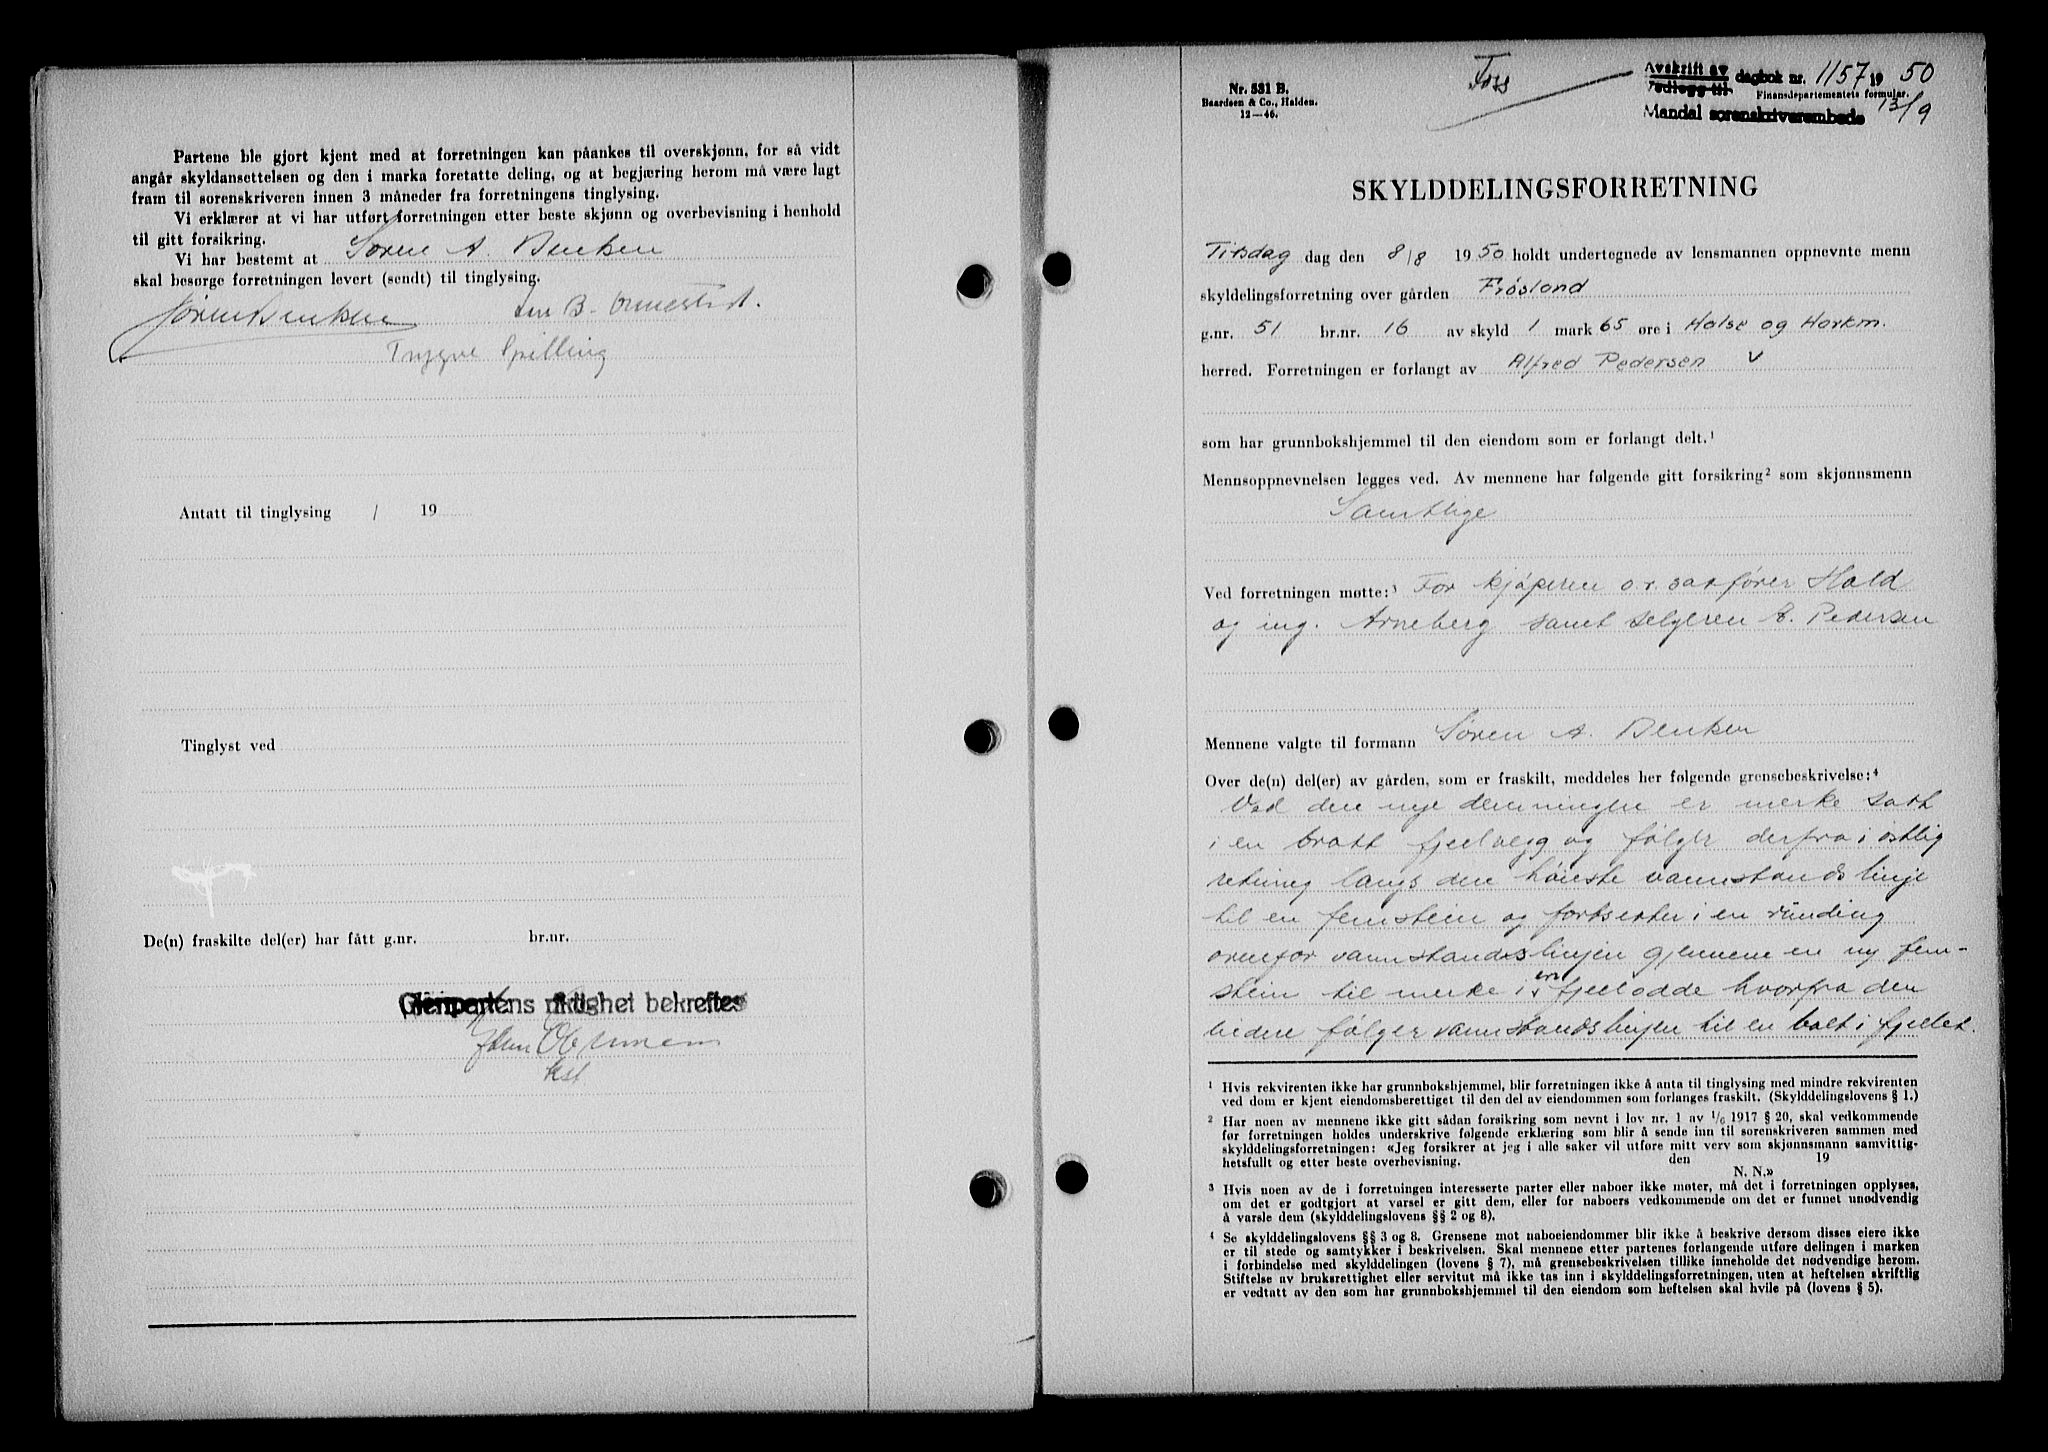 Partene ble gjort kjent med at forretningen kan påankes til overskjønn, for så vidt
angår skyldansettelsen og den i marka foretatte deling, og at begjæring herom må være lagt
fram til sorenskriveren innen 3 måneder fra forretningens tinglysing.
Vi erklærer at vi har utført forretningen etter beste skjønn og overbevisning i henhold
til gitt forsikring.
Vi har bestemt at Søren A. Benken
skal besørge forretningen levert (sendt) til tinglysing.
Søren Benken
B. Ormestad.
Trygve Spilling
Antatt til tinglysing / 19
Tinglyst ved
De(n) fraskilte del(er) har fått g.nr. br.nr.
Gjenpartens riktighet bekreftes
Nr. 531 B.
Baardsen & Co., Halden.
12—46.
Fors
Avskrift av
Vedlegg til dagbok nr. 1157 1950
Finansdepartementets formular.
Mandal sorenskriverembede 13/9
SKYLDDELINGSFORRETNING
Tirsdag dag den 8/8 1950 holdt undertegnede av lensmannen oppnevnte menn
skyldelingsforretning over gården Frøsland
g.nr. 51 br.nr. 16 av skyld 1 mark 65 øre i Halse og Harkm.
herred. Forretningen er forlangt av Alfred Pedersen V
som har grunnbokshjemmel til den eiendom som er forlangt delt.¹
Mennsoppnevnelsen legges ved. Av mennene har følgende gitt forsikring² som skjønnsmenn
Samtlige
Ved forretningen møtte:³ For kjøperen o.r.sakfører Hald
og ing. Arneberg samt selgeren A. Pedersen
Mennene valgte til formann Søren A. Benken
Over de(n) del(er) av gården, som er fraskilt, meddeles her følgende grensebeskrivelse:⁴
Ved den nye demningen er merke satt
i en bratt fjellvegg og følger derfra i østlig
retning langs den høieste vannstands linje
til en femstein og fortsetter i en runding
ovenfor vannstandslinjen gjennem en ny fem-
stein til merke i en fjellodde hvorfra den
videre følger vannstandslinjen til en bolt i fjellet.
¹ Hvis rekvirenten ikke har grunnbokshjemmel, blir forretningen ikke å anta til tinglysing med mindre rekvirenten
ved dom er kjent eiendomsberettiget til den del av eiendommen som forlanges fraskilt. (Skylddelingslovens § 1.)
² Har noen av mennene ikke gitt sådan forsikring som nevnt i lov nr. 1 av 1/6 1917 § 20, skal vedkommende
før forretningen holdes underskrive følgende erklæring som blir å sende inn til sorenskriveren sammen med
skylddelingsforretningen: «Jeg forsikrer at jeg i alle saker vil utføre mitt verv som skjønnsmann samvittig-
hetsfullt og etter beste overbevisning. den 19
N. N.»
³ Hvis noen av de i forretningen interesserte parter eller naboer ikke møter, må det i forretningen opplyses,
om det er godtgjort at varsel er gitt dem, eller for naboers vedkommende om det er funnet unødvendig
å varsle dem (skylddelingslovens §§ 2 og 8).
⁴ Se skylddelingslovens §§ 3 og 8. Grensene mot naboeiendommer blir ikke å beskrive dersom disses eiere ikke
er til stede og samtykker i beskrivelsen. Skal mennene etter partenes forlangende utføre delingen i marken
i forbindelse med skylddelingen (lovens § 7), må grensebeskrivelsen tillike inneholde det nødvendige herom.
Stiftelse av bruksrettighet eller servitut må ikke tas inn i skylddelingsforretningen, uten at heftelsen skriftlig
er vedtatt av den som har grunnbokshjemmel til den eiendom som heftelsen skal hvile på (lovens § 5).